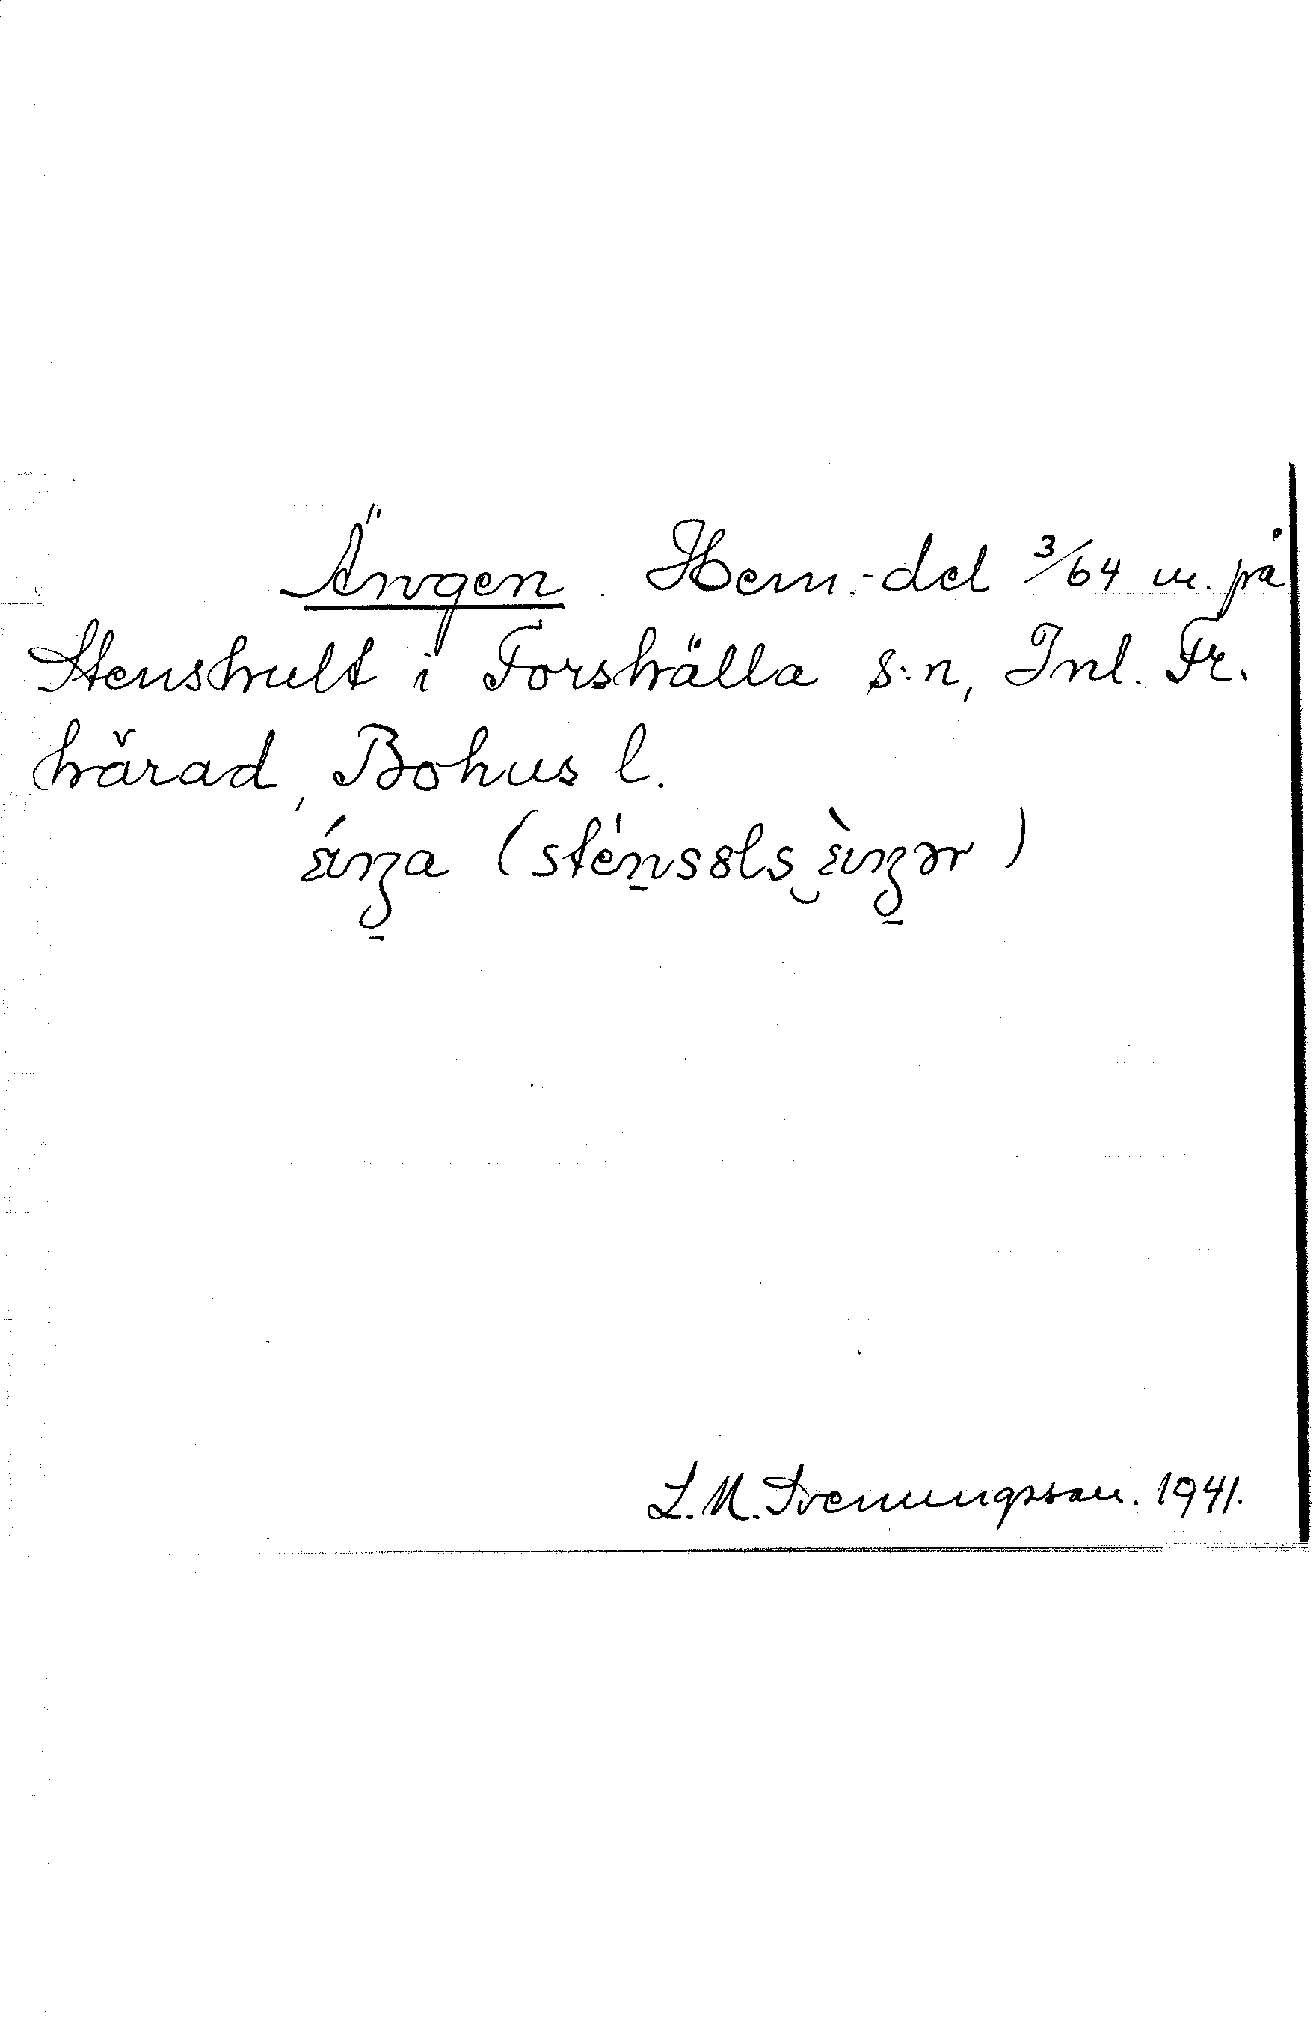 Ängen. Hem.-del 3/64 m. på
Stenshult i Forshälla s:n, Inl. Fr.
härad, Bohus l.
L.M. Svenungsson. 1941.